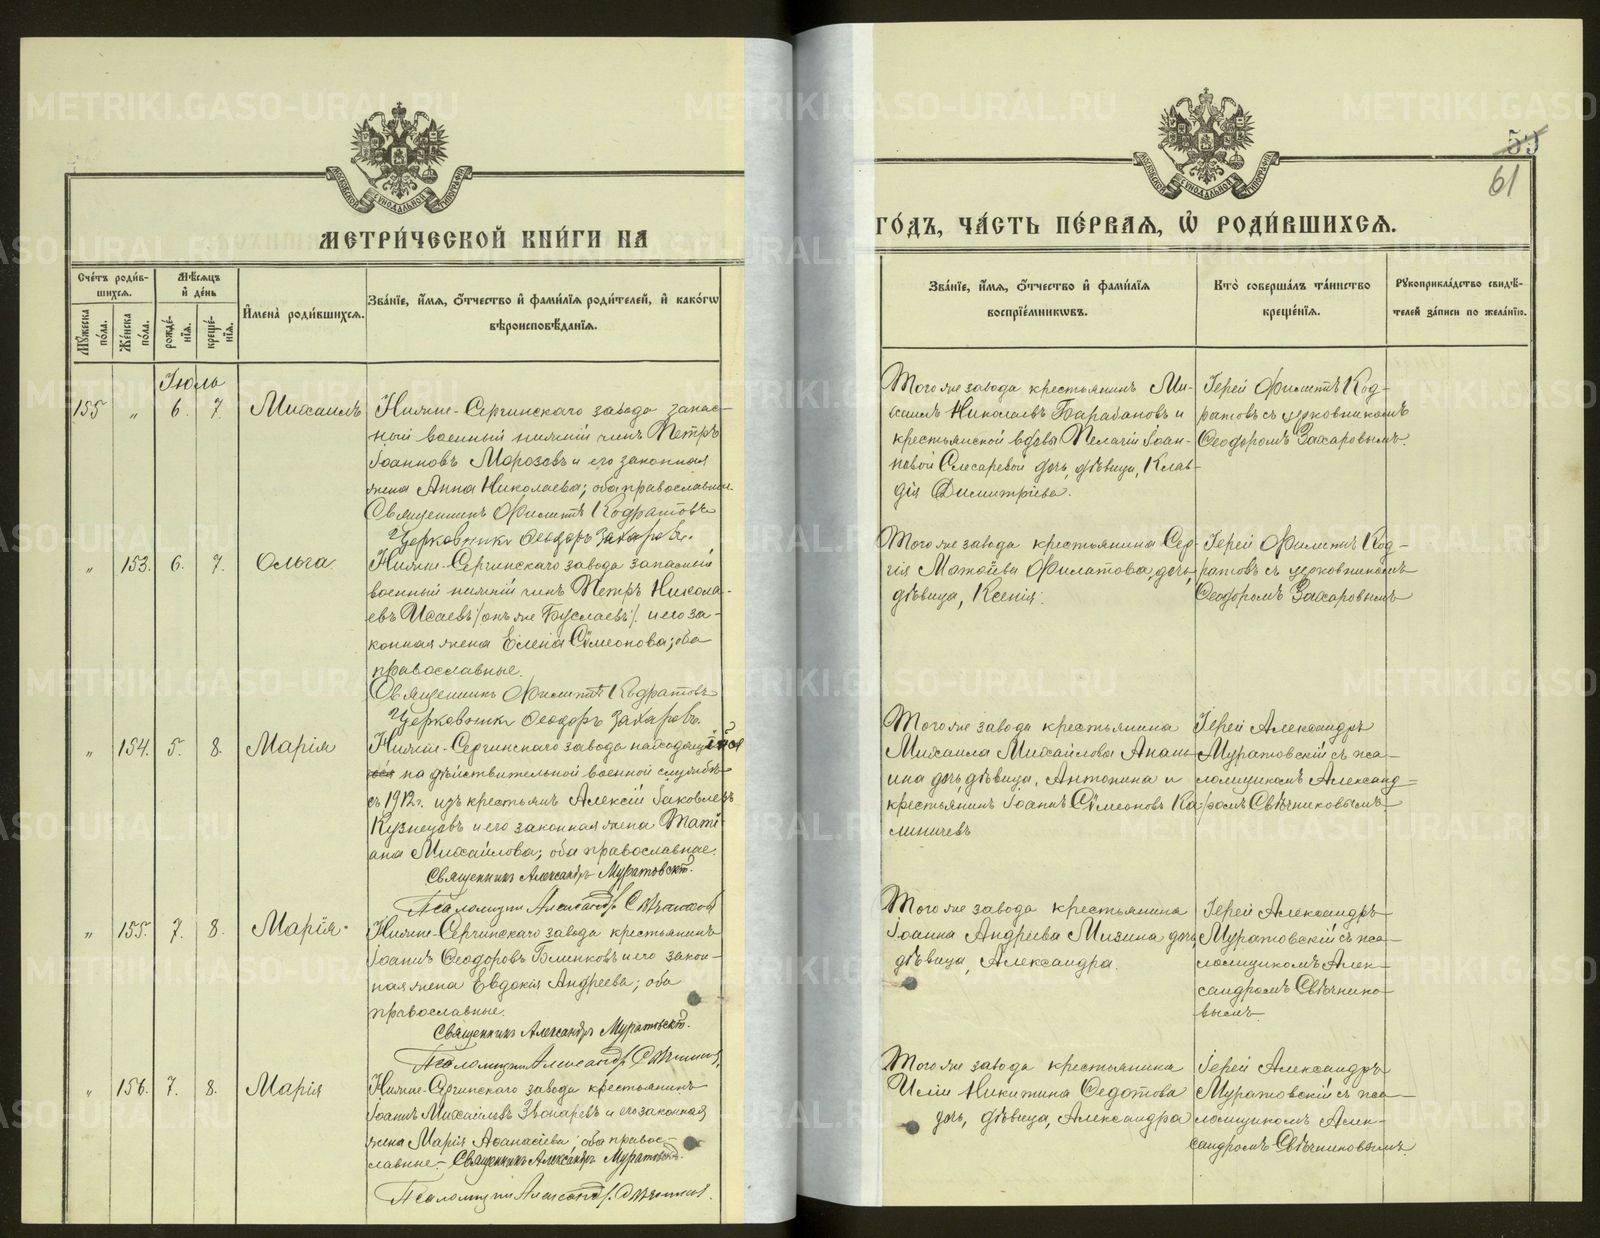 МЕТРИ́ЧЕСКОЙ КНИ́ГИ НА
Сче́тъ роди́в-
шихсѧ.
Мѣ́сѧцъ
и҆ де́нь
И҆мена̀ роди́вшихсѧ.
Зва́нїе, и҆́мѧ, ѻ҆́тчество и҆ фами́лїѧ роди́телей, и҆ како́гѡ
вѣроисповѣ́данїѧ.
Мꙋ́жеска
по́ла.
Же́нска
по́ла.
рожде́-
нїѧ.
креще́-
нїѧ.
Іюль
155 „ 6. 7. Михаилъ
Нижне-Сергинскаго завода запас-
ный военный нижній чинъ Петръ
Іоанновъ Морозовъ и его законная
жена Анна Николаева; оба православные
Священникъ Филиппъ Кодратовъ
Церковникъ Ѳеодоръ Захаровъ.
„ 153. 6. 7. Ольга
Нижне-Сергинскаго завода запасный
военный нижній чинъ Петръ Никола-
евъ Исаевъ /онъ же Буслаевъ/ и его за-
конная жена Елена Сѵмеонова; оба
православные.
Священникъ Филиппъ Кодратовъ
Церковникъ Ѳеодоръ Захаровъ.
„ 154. 5. 8. Марія
Нижне-Сергинскаго завода находящійся
на дѣйствительной военной службѣ
съ 1912 г. изъ крестьянъ Алексій Іаковлевъ
Кузнецовъ и его законная жена Тати-
ана Михайлова; оба православные.
Священникъ Александръ Муратовскій.
Псаломщикъ Александръ Свѣчниковъ
„ 155. 7. 8. Марія
Нижне-Сергинскаго завода крестьянинъ
Іоаннъ Ѳеодоровъ Блинковъ и его закон-
ная жена Евдокія Андреева; оба
православные.
Священникъ Александръ Муратовскій.
Псаломщикъ Александръ Свѣчниковъ
„ 156. 7. 8. Марія
Нижне-Сергинскаго завода крестьянинъ
Іоаннъ Михайловъ Звонаревъ и его законная
жена Марія Аѳанасіева; оба правос-
лавные. Священникъ Александръ Муратовскій.
Псаломщикъ Александръ Свѣчниковъ.
59
61
ГО́ДЪ, ЧА́СТЬ ПЕ́РВАЯ, Ѡ҆ РОДИ́ВШИХСѦ.
Зва́нїе, и҆́мѧ, ѻ҆́тчество и҆ фами́лїѧ
воспрїе́мникѡвъ.
Кто̀ соверша́лъ та́инство
креще́нїѧ.
Рꙋкоприкла́дство свидѣ́-
телей за́писи по жела́нїю.
Того же завода крестьянинъ Ми-
хаилъ Николаевъ Барабановъ и
крестьянской вдовы Пелагіи Іоан-
новой Слесаревой дочь, дѣвица, Клав-
дія Димитріева.
Іерей Филиппъ Код-
ратовъ съ церковникомъ
Ѳеодоромъ Захаровымъ.
Того же завода крестьянина Сер-
гія Матѳіева Филатова, дочь,
дѣвица, Ксенія.
Іерей Филиппъ Код-
ратовъ съ церковникомъ
Ѳеодоромъ Захаровымъ
Того же завода крестьянина
Михаила Михайлова Анань-
ина дочь, дѣвица, Антонина и
крестьянинъ Іоаннъ Сѵмеоновъ Ка-
линичевъ
Іерей Александръ
Муратовскій съ пса-
ломщикомъ Александ-
ромъ Свѣчниковымъ
Того же завода крестьянина
Іоанна Андреева Мизина дочь,
дѣвица, Александра.
Іерей Александръ
Муратовскій съ пса-
ломщикомъ Алек-
сандромъ Свѣчнико-
вымъ
Того же завода крестьянина
Иліи Никитина Ѳедотова
дочь, дѣвица, Александра
Іерей Александръ
Муратовскій съ пса-
ломщикомъ Алек-
сандромъ Свѣчниковымъ.
METRIKI.GASO-URAL.RU